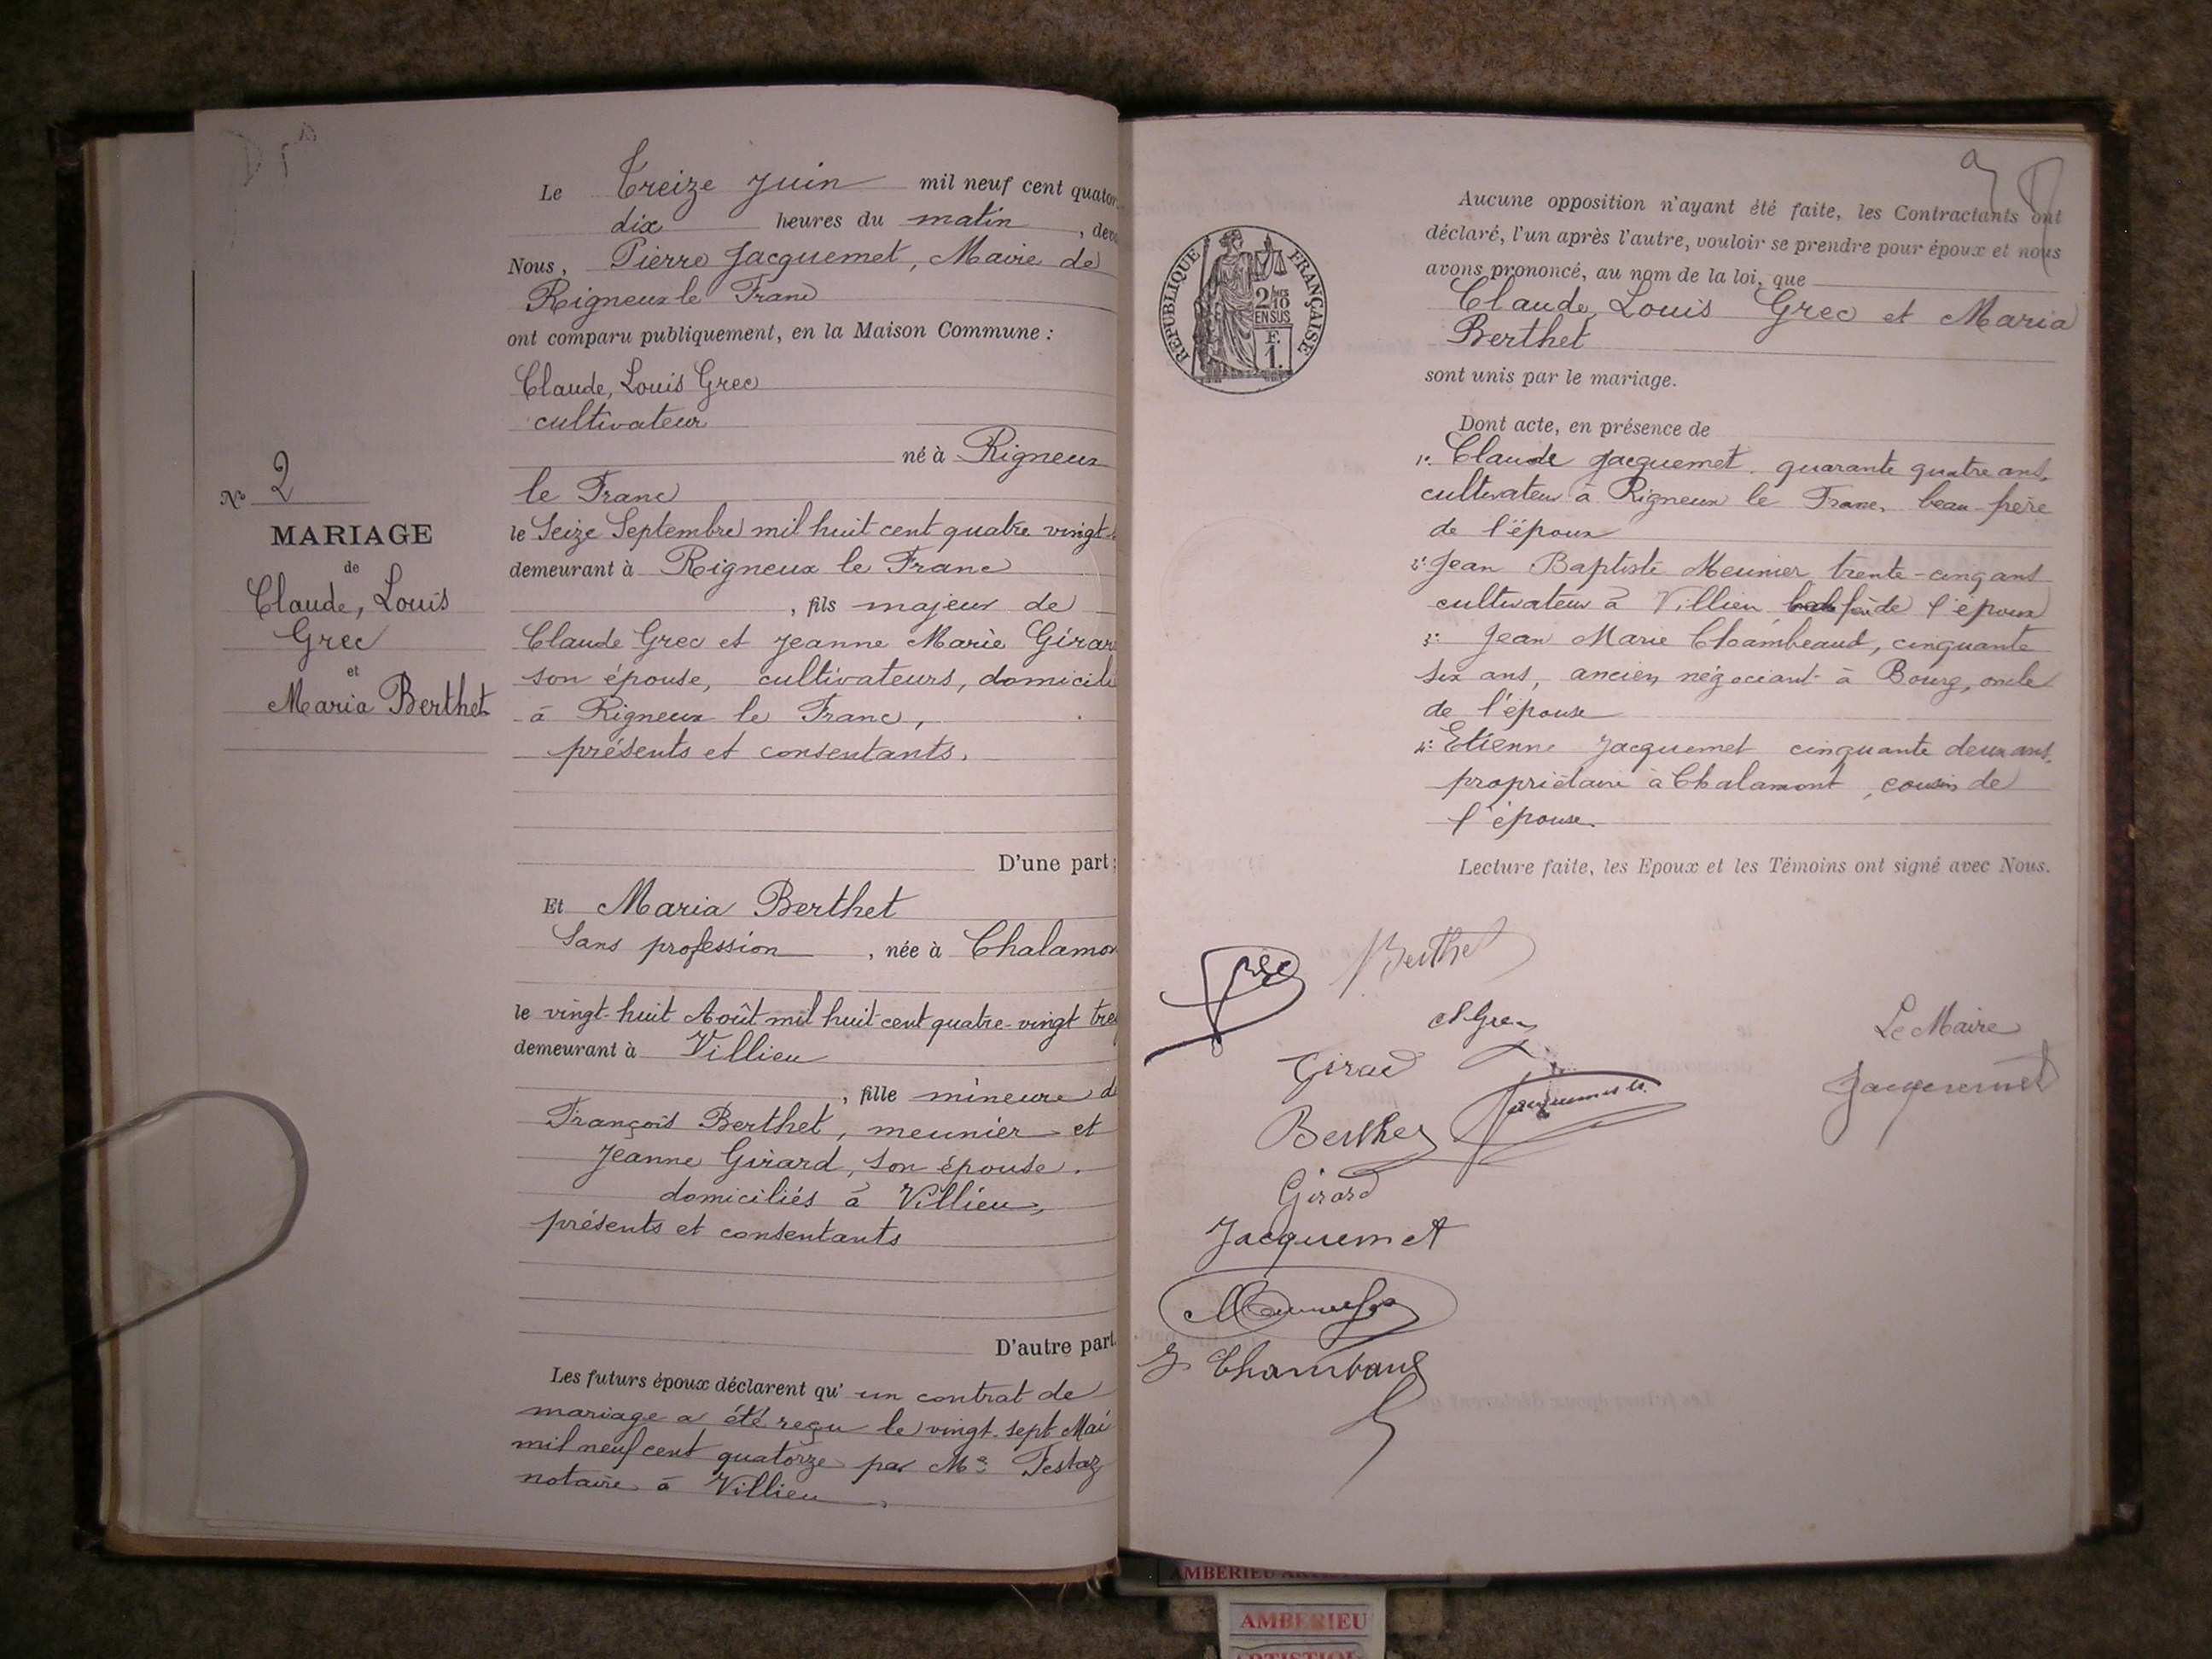 Le Treize Juin mil neuf cent quator
dix heures du matin, dev
Nous, Pierre Jacquemet, Maire de
Rigneux le Franc
ont comparu publiquement, en la Maison Commune :
Claude, Louis Grec
cultivateur
né à Rigneux
le Franc
le Seize Septembre mil huit cent quatre vingt
demeurant à Rigneux le Franc
, fils majeur de
Claude Grec et Jeanne Marie Girar
son épouse, cultivateurs, domicili
à Rigneux le Franc,
présents et consentants.
D'une part ;
Et Maria Berthet
Sans profession, née à Chalamon
le vingt-huit Août mil huit cent quatre-vingt trei
demeurant à Villieu
, fille mineure d
François Berthet, meunier et
Jeanne Girard, son épouse.
domiciliés à Villieu,
présents et consentants
D'autre part.
Les futurs époux déclarent qu' un contrat de
mariage a été reçu le vingt-sept Mai
mil neuf cent quatorze par Me Testaz
notaire à Villieu.
No 2
MARIAGE
de
Claude, Louis
Grec
et
Maria Berthet
REPUBLIQUE FRANÇAISE
2/10
EN SUS
F.
1.
Aucune opposition n'ayant été faite, les Contractants ont
déclaré, l'un après l'autre, vouloir se prendre pour époux et nous
avons prononcé, au nom de la loi, que
Claude, Louis Grec et Maria
Berthet
sont unis par le mariage.
Dont acte, en présence de
1o. Claude Jacquemet quarante quatre ans,
cultivateur à Rigneux le Franc, beau-frère
de l'époux
2o. Jean Baptiste Meunier trente-cinq ans
cultivateur à Villieu de l'époux
3o. Jean Marie Chambeaud, cinquante
six ans, ancien négociant à Bourg, oncle
de l'épouse
4o. Etienne Jacquemet cinquante deux ans,
propriétaire à Chalamont, cousin de
l'épouse.
Lecture faite, les Epoux et les Témoins ont signé avec Nous.
Grec
Berthet
Grec
Le Maire
Girard
Jacquemet
Berthet
Girard
Jacquemet
J Chambaud
AMBERIEU